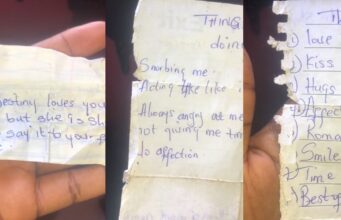 estiny loves you
but she is sh
say it to your f
THING
doin
Snorbing me.
Acting like like i
Always angry at me
not giving me tim
to affection
1) love
) Kiss
) Hugs
Affec
) Roma
Smile
Time
) Best